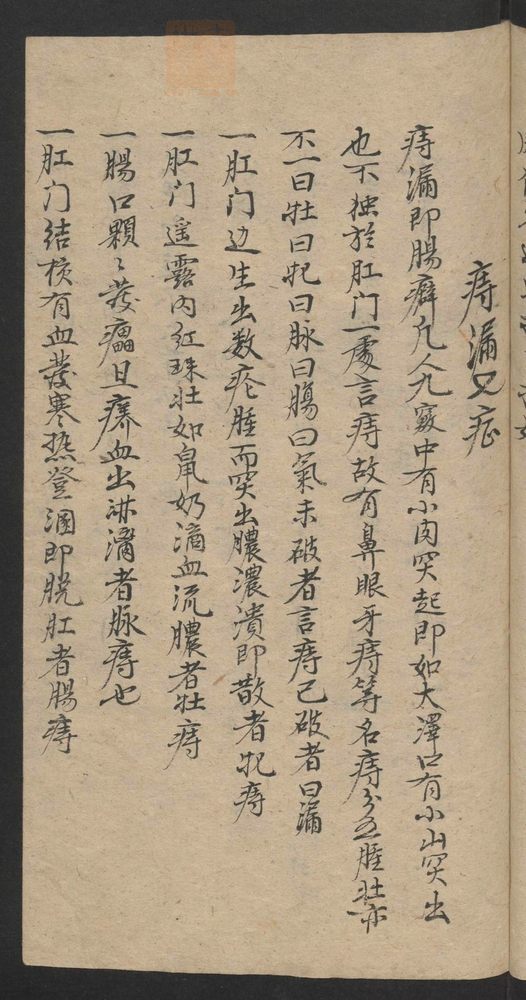 痔漏又症
痔漏即腸癖凡人九竅中有小肉突起即如大澤口有小山突出
也不独於肛門一處言痔故有鼻眼牙痔等名痔分五腫壯亦
不一曰牡曰牝曰脉曰腸曰氣未破者言痔已破者曰漏
一肛门边生出数疙腫而突出膿濃潰即散者牝痔
一肛门遥露肉红珠壯如鼠奶滴血流膿者牡痔
一腸口顆〻發瘟且痒血出淋滴者脉痔也
一肛门结核有血發寒热登溷即脱肛者腸痔